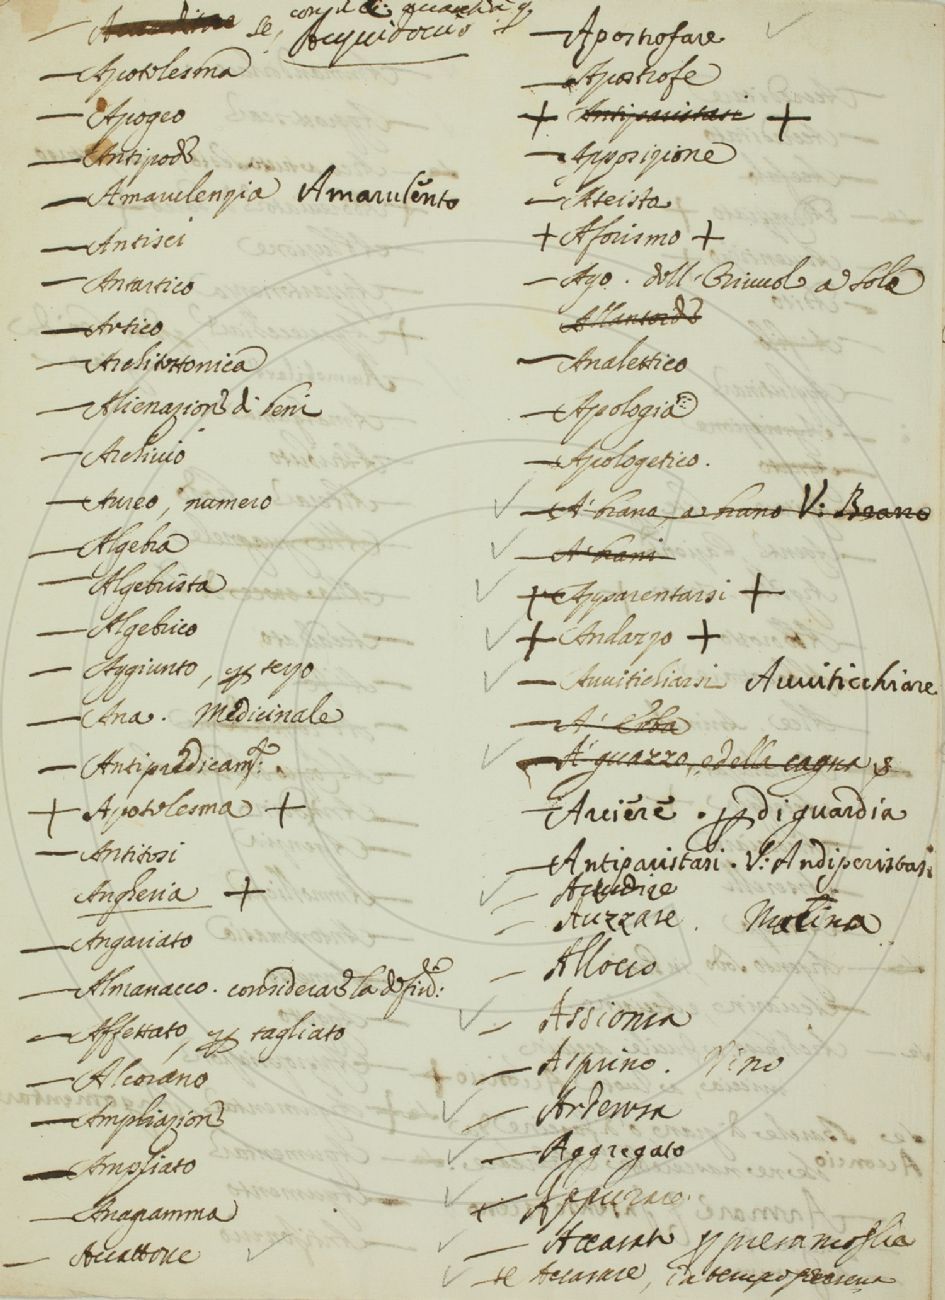 Acquidocio
— Apotelesma
— Apogeo
— Antipodi
— Amarulenzia Amarulento
— Antisci
— Antartico
— Artico
— Architettonica
— Alienazione di beni
— Archivio
— Aureo, numero
— Algebra
— Algebrista
— Algebrico
— Aggiunto, per terzo
— Ana. Medicinale
— Antipredicam.to:
+ Apotelesma +
— Antitesi
Angheria +
— Angariato
— Almanacco. considerare la
— Affettato, per tagliato
— Alcorano
— Ampliazione
— Ampliato
— Anagramma
— Accattone
— Apostrofare
— Apostrofe
+ Antiparistasi +
— Apposizione
— Ateista
+ Aforismo +
— Ago. dell' a Sole
Allantoide
— Analettico
— Apologia
— Apologetico.
— A' brano, a brano V: Brano
— A' brani
+ Apparentarsi +
+ Andazzo +
— Avviticchiarsi Avviticchiare
— A' Erba
— A' guazzo, e della
— Arciere. per di guardia
— Antiparistasi. V: Andiperistasi
— Accudire
— Auzzare. Mattina
— Allocco
— Assioma
— Asprino. Vino
— Arterosa
— Aggregato
+ Appurare.
— Accasato per presa moglie
— se Accasare,